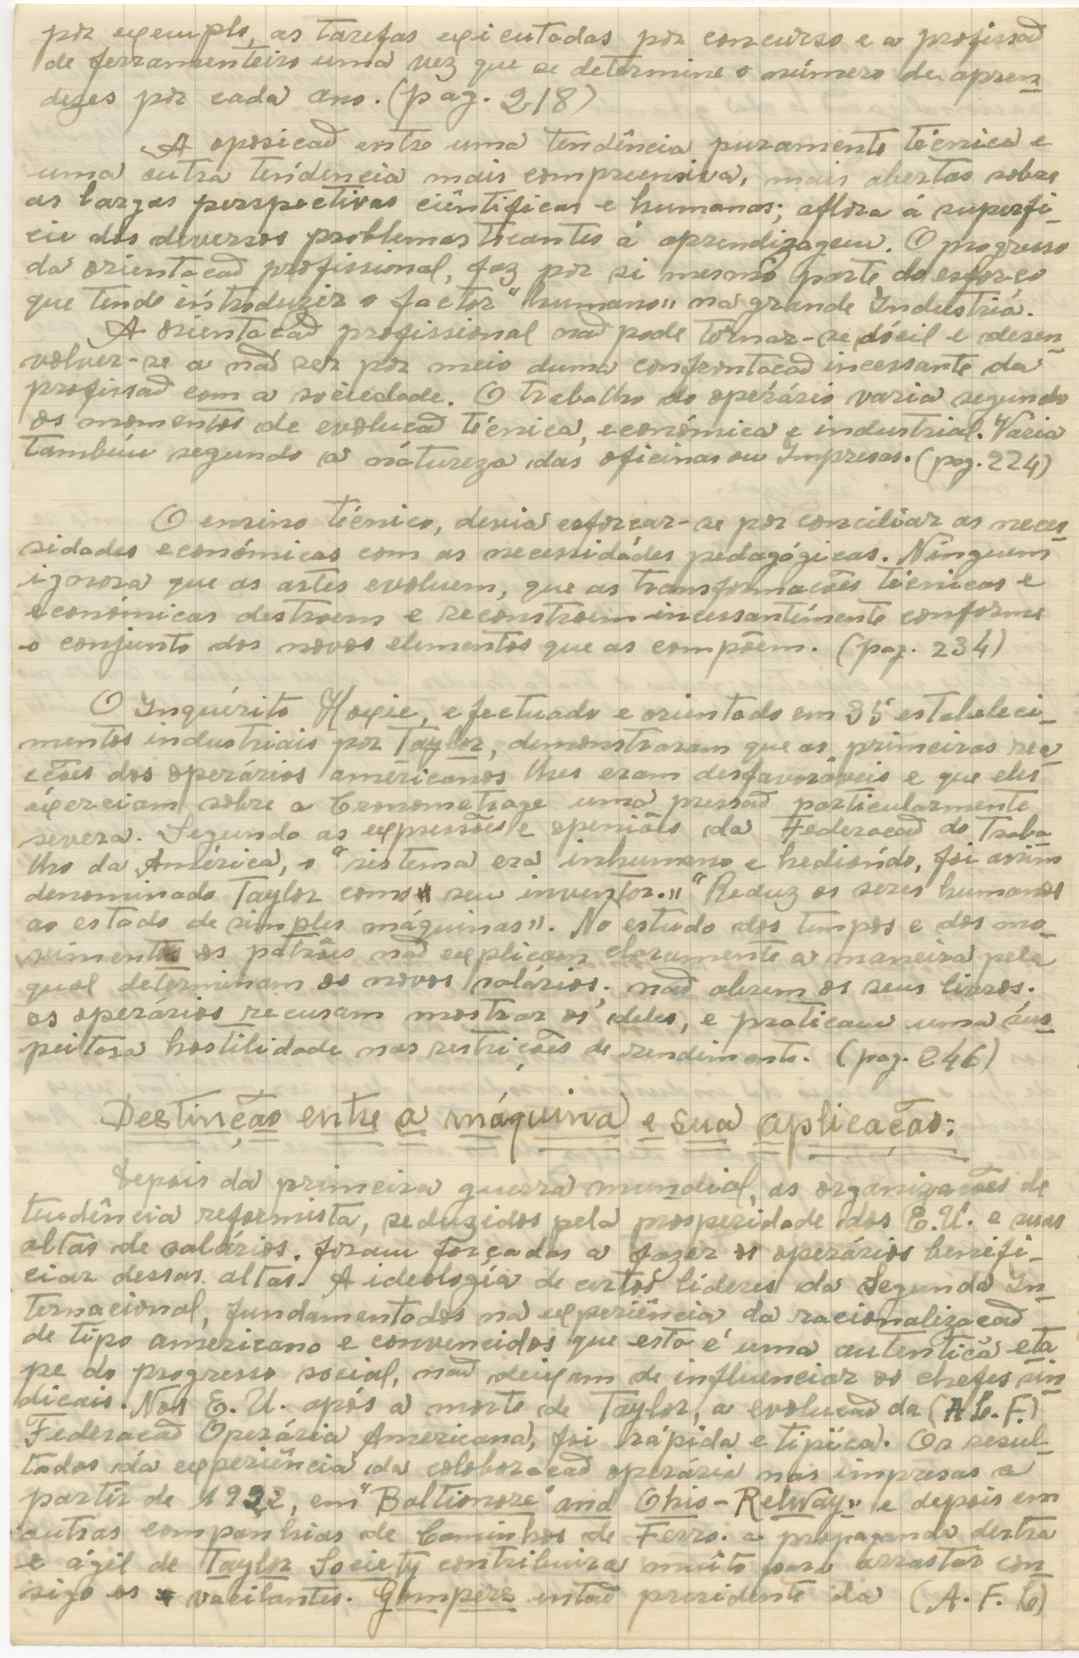 por exemplo, as tarefas executadas por concurso e a profissaõ
de ferramenteiro uma vez que se determine o número de apren
dezes por cada ano. (pag. 218)
A oposicaõ entre uma tendência puramente técnica e
uma outra tendencia mais compreensiva, mais abertas sobre
as largas perspectivas ciêntificas e humanas; aflora á superfi-
cie dos diversos problemas tocantes á aprendizagem. O progresso
da orientacaõ profissional, faz por si mesmo parte do esforço
que tende introduzir o factor "humano" na grande Industria.
A orientacaõ profissional naõ pode tornar-se dócil e desen
volver-se a naõ ser por meio duma confrontacaõ incessante da
profissaõ com a sociedade. O trabalho do operário varia segundo
os momentos de evolucaõ técnica, económica e industrial. Varia
tambêm segundo a natureza das oficinas ou Impresas. (pag. 224)
O ensino técnico, devia esforcar-se por conciliar as neces
sidades económicas com as necessidádes pedagógicas. Ninguem
ignora que as artes evoluem, que as transformacões técnicas e
económicas destroem e reconstroem incessantemente conforme
o conjunto dos novos elementos que as compõem. (pag. 234)
O Inquérito Hoxie, efectuado e orientado em 35 estabeleci-
mentos industriais por Taylor, demonstraram que as primeiras rea
ccões dos operários americanos lhes eram desfavoráveis e que eles
exerciam sobre a Cronometrage uma pressaõ particularmente
severa. Segundo as expressões e openiões da Federacaõ do Traba
lho da América, o "sistema era inhumano e hediondo, foi assim
denominado Taylor como seu inventor." "Reduz os seres humanos
ao estado de simples máquinas". No estudo dos tempos e dos mo-
vimentos os patrões naõ explicam claramente a maneira pela
qual determinam os novos salários; naõ abrem os seus livros.
os operários recusam mostrar os deles, e praticam uma sus
peitosa hostilidade nas restrições de rendimento. (pag. 246)
Destinção entre a máquina e sua aplicação:
Depois da primeira guerra mundial, as organizacões de
tendência reformista, seduzidos pela prosperidade dos E.U. e suas
altas de salários. foram forçadas a fazer os operários benefi-
ciar dessas altas. A ideologia de certos líderes da Segunda In-
ternacional, fundamentados na experiência da racionalizacaõ
de tipo americano e convencidos que esta é uma autentica eta
pe do progresso social, naõ deixam de influenciar os chefes sin
dicais. Nos E. U. após a morte de Taylor, a evolucaõ da (A L. F.)
Federacaõ Operária Americana, foi rápida e tipica. Os resul-
tados da experiência da coloboracaõ operária nas impresas a
partir de 1922, em "Baltionore" and Ohio-Relway" e depois em
outras companhias de Caminhos de Ferro. a propaganda destra
e ágil de Taylor Society contribuira muito para arrastar con
sigo os vacilantes. Gompers entaõ presidente da (A. F. L)